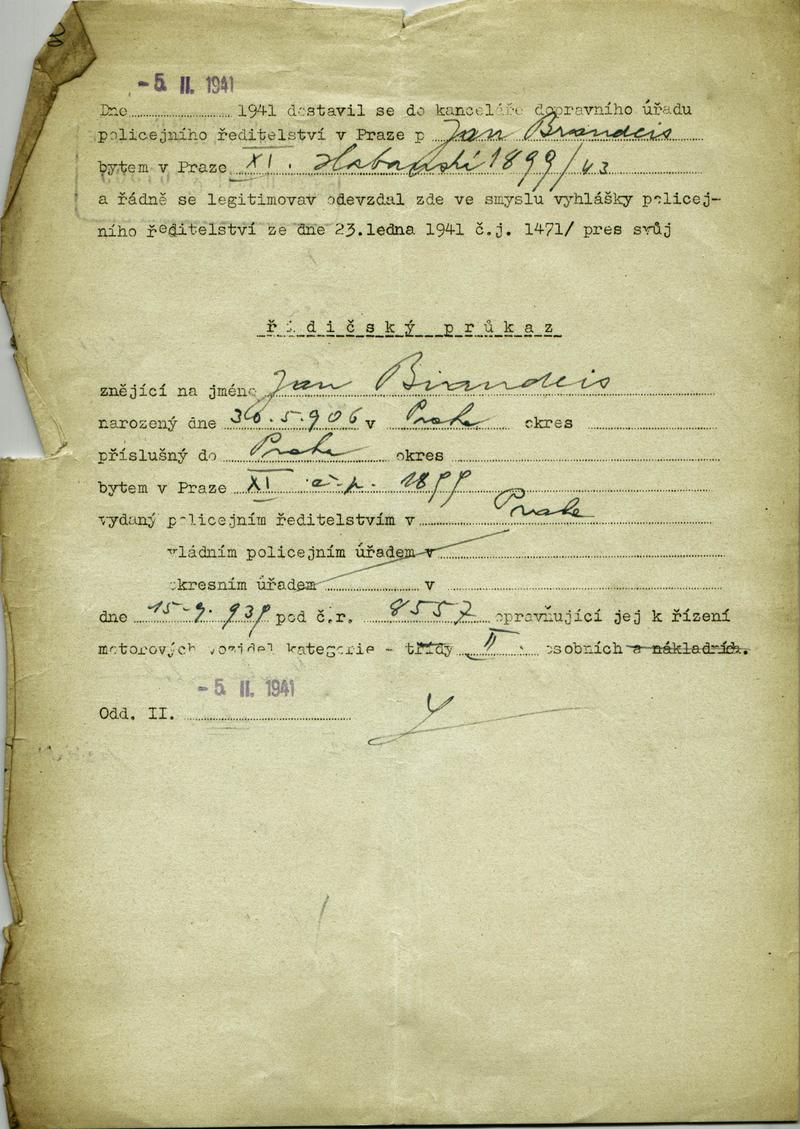 - 5. II. 1941
Dne 1941 dostavil se do kanceláře dopravního úřadu
policejního ředitelství v Praze p Jan Brandeis
bytem v Praze XI. 1899/43
a řádně se legitimovav odevzdal zde ve smyslu vyhlášky policej-
ního ředitelství ze dne 23.ledna 1941 č.j. 1471/ pres svůj
řidičský průkaz
znějící na jméno Jan Brandeis
narozený dne 30.5.906 v Praha okres
příslušný do Praha okres
bytem v Praze XI č.p. 1899
vydaný policejním ředitelstvím v Praha
vládním policejním úřadem v
okresním úřadem v
dne 15.9.939 pod č.r. 8557 opravňující jej k řízení
motorových vozidel kategorie - třídy II. osobních a nákladních.
- 5. II. 1941
Odd. II.